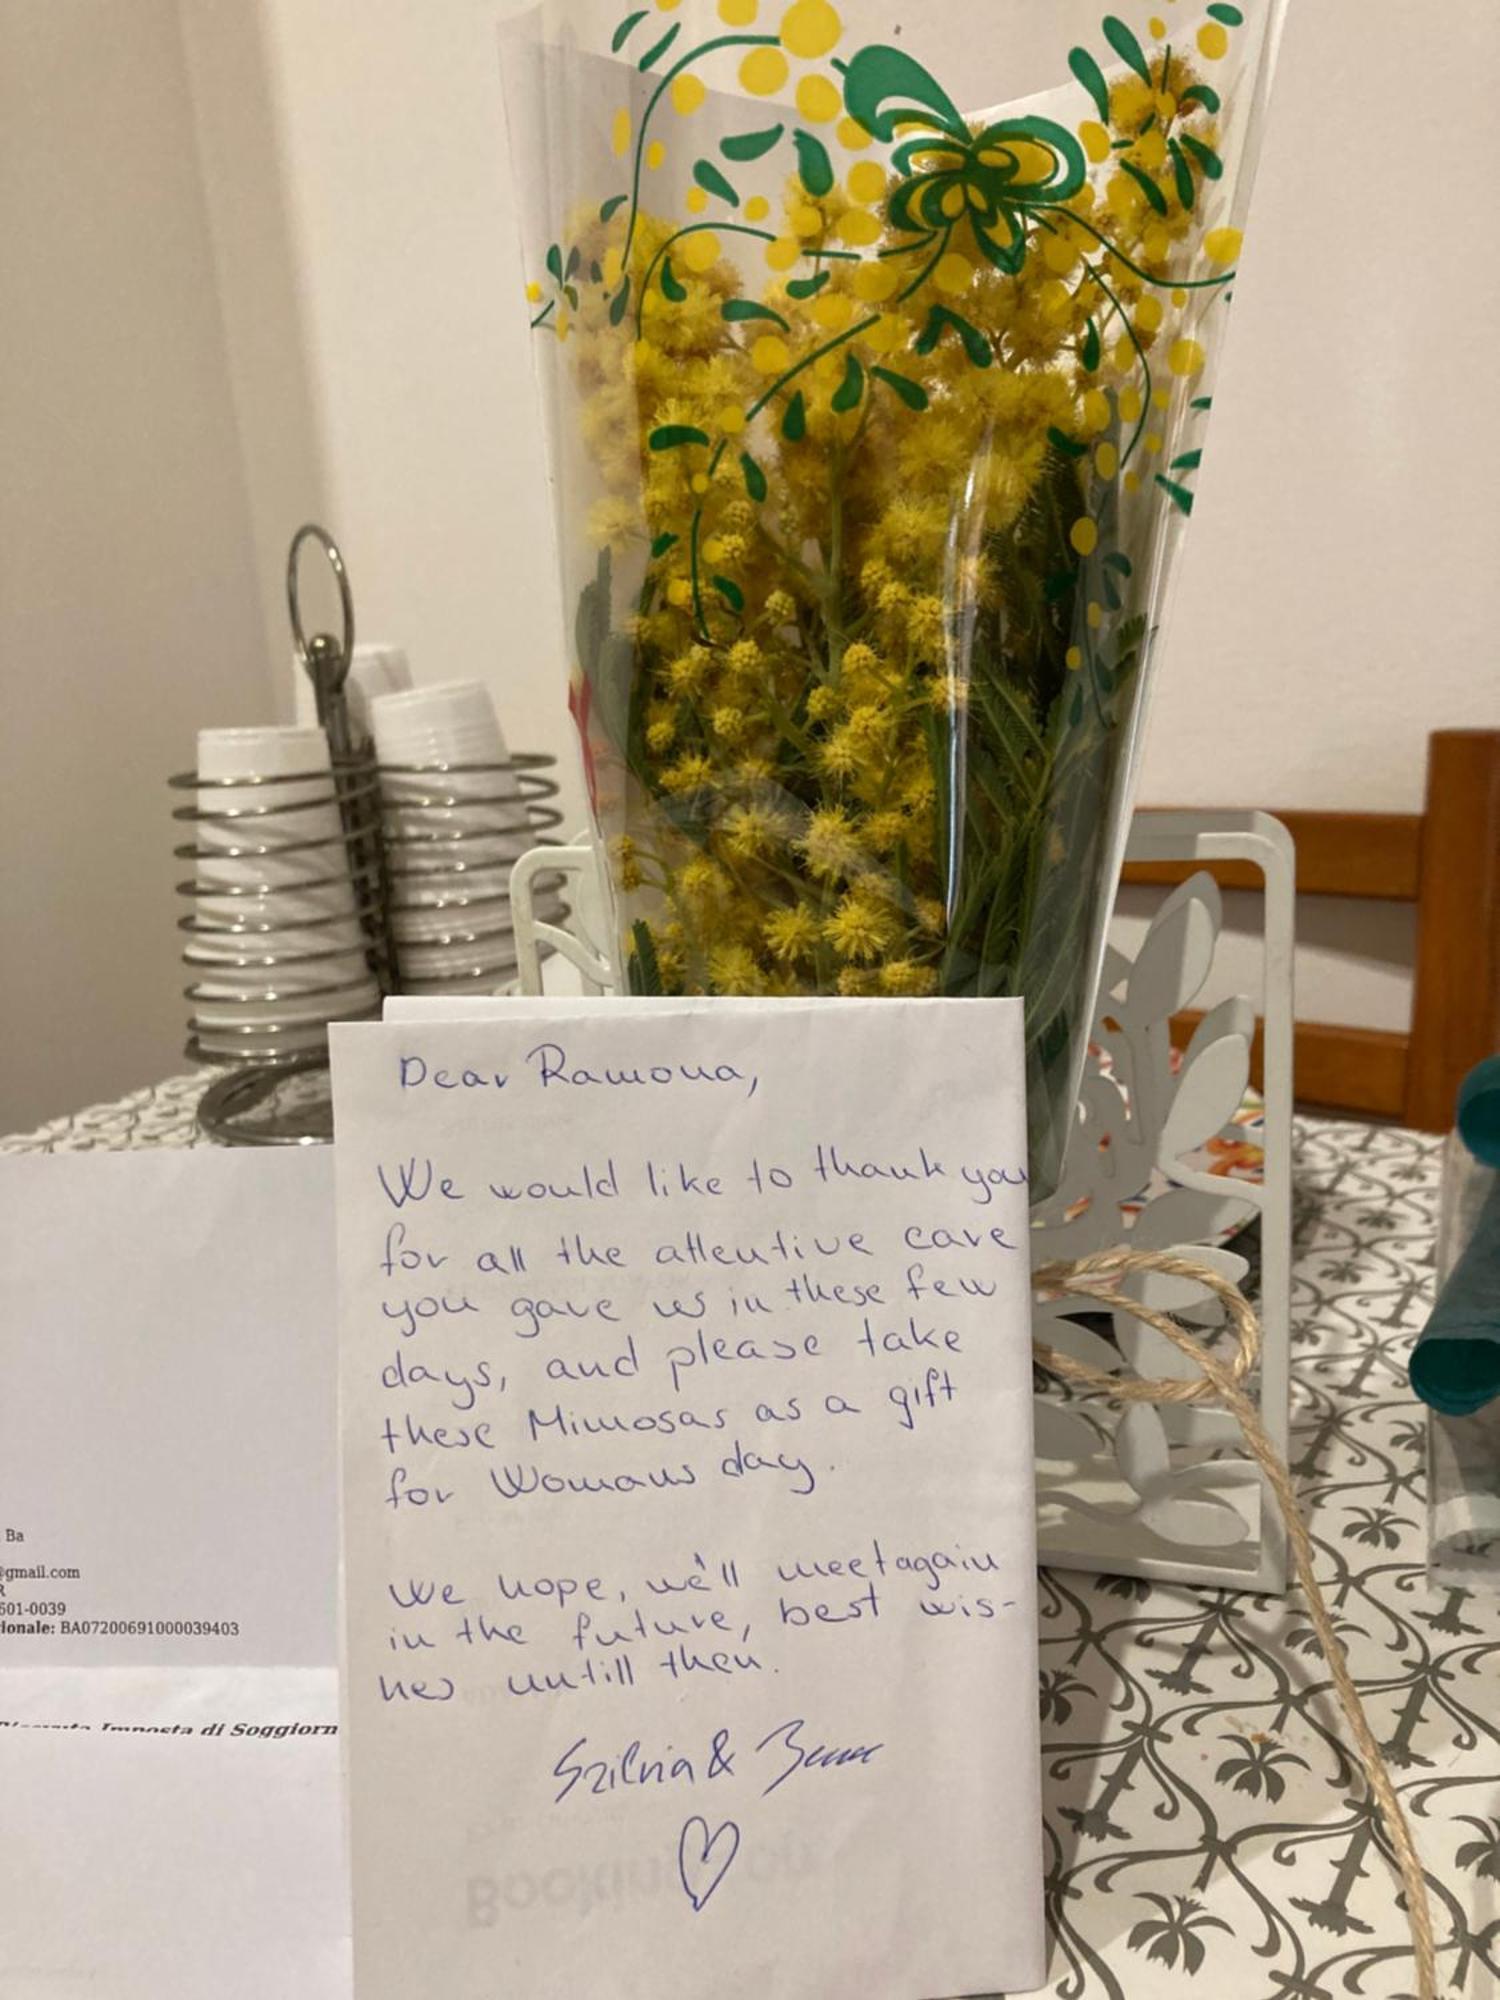 Dear Ramona,
We would like to thank you
for all the attentive care
you gave us in these few
days, and please take
these Mimosas as a gift
for Womans day.
We hope, we'll meet again
in the future, best wis-
hes untill then.
Szilvia &
Ba
@gmail.com
R
601-0039
ionale: BA07200691000039403
Imposta di Soggiorn
Booking